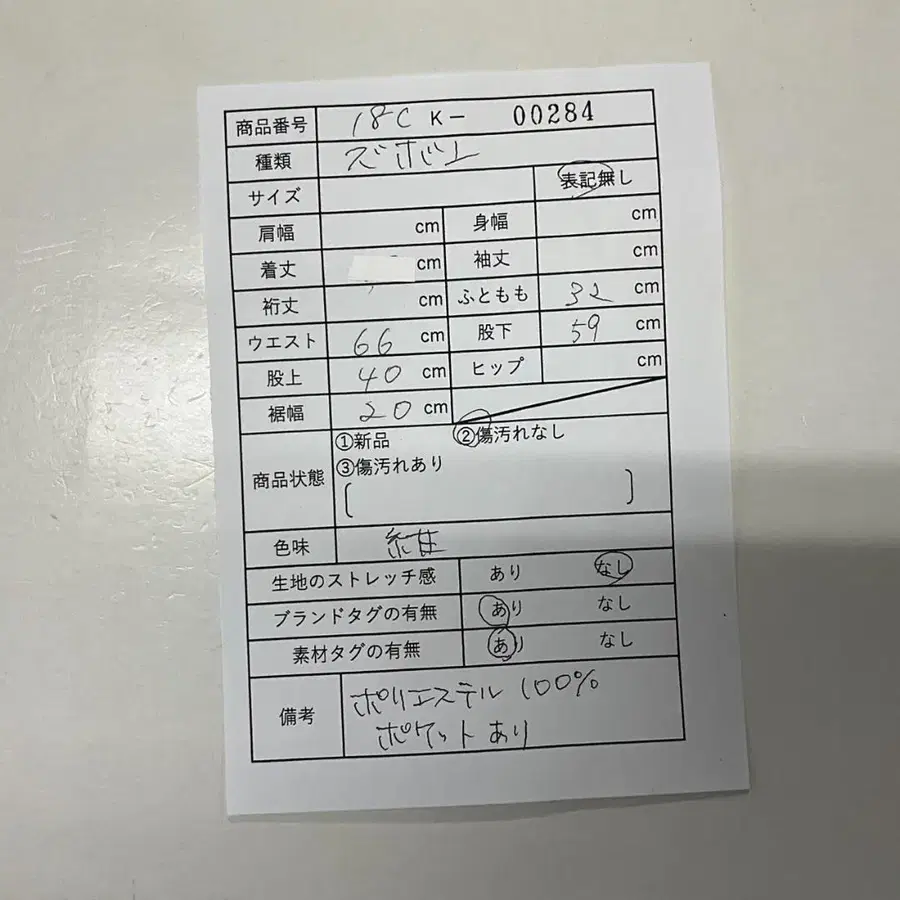 商品番号 18C K- 00284
種類 ズボン
サイズ 表記無し
肩幅 cm 身幅 cm
着丈 cm 袖丈 cm
裄丈 cm ふともも 32 cm
ウエスト 66 cm 股下 59 cm
股上 40 cm ヒップ cm
裾幅 20 cm
商品状態 ①新品 ②傷汚れなし
③傷汚れあり
( )
色味 紺
生地のストレッチ感 あり なし
ブランドタグの有無 あり なし
素材タグの有無 あり なし
備考 ポリエステル 100%
ポケットあり